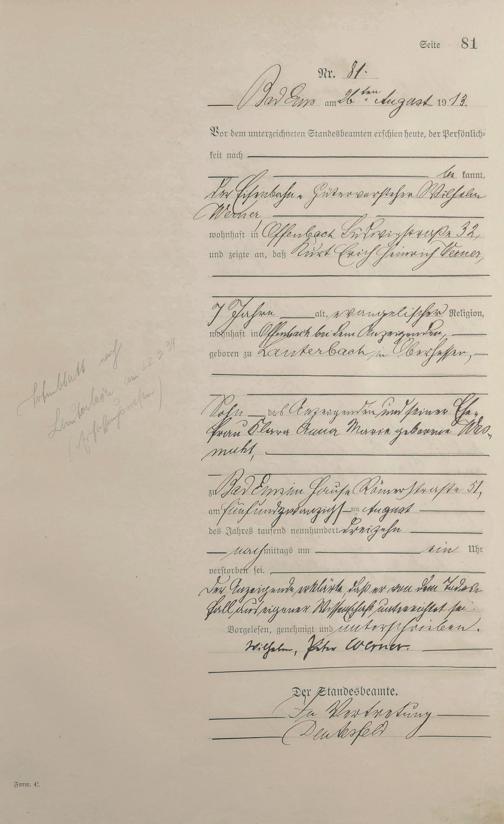 Seite 81
Nr. 81.
Bad Ems am 26ten August 1913.
Vor dem unterzeichneten Standesbeamten erschien heute, der Persönlich-
keit nach
be kannt,
der Eisenbahn-Gütervorsteher Wilhelm
Werner
wohnhaft in Offenbach Ludwigstraße 32
und zeigte an, daß Kurt Erich Heinrich Werner,
7 Jahre alt, evangelischer Religion,
wohnhaft in Offenbach bei dem Anzeigenden,
geboren zu Lauterbach in Oberhessen,
Sohn des Anzeigenden und seiner Ehe-
frau Clara Anna Marie geborene
zu Bad Ems im Hause Römerstraße 51,
am fünfundzwanzigsten August
des Jahres tausend neunhundert dreizehn
nachmittags um ein Uhr
verstorben sei.
Der Anzeigende erklärte, daß er von dem Todes-
fall aus eigener Wissenschaft unterrichtet sei.
Vorgelesen, genehmigt und unterschrieben.
Wilhelm, Peter Werner.
Der Standesbeamte.
In Vertretung
Form. C.